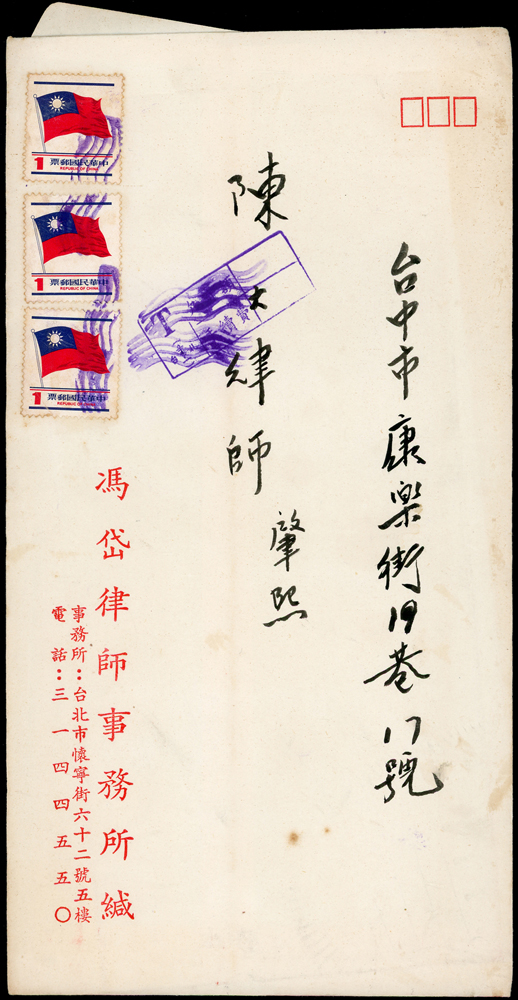 台中市康樂街19巷17號
陳大律師 肇熙
馮岱律師事務所緘
事務所：台北市懷寧街六十二號五樓
電話：三一四四五五〇
1 票郵國民華中
REPUBLIC OF CHINA
1 票郵國民華中
REPUBLIC OF CHINA
1 票郵國民華中
REPUBLIC OF CHINA
T